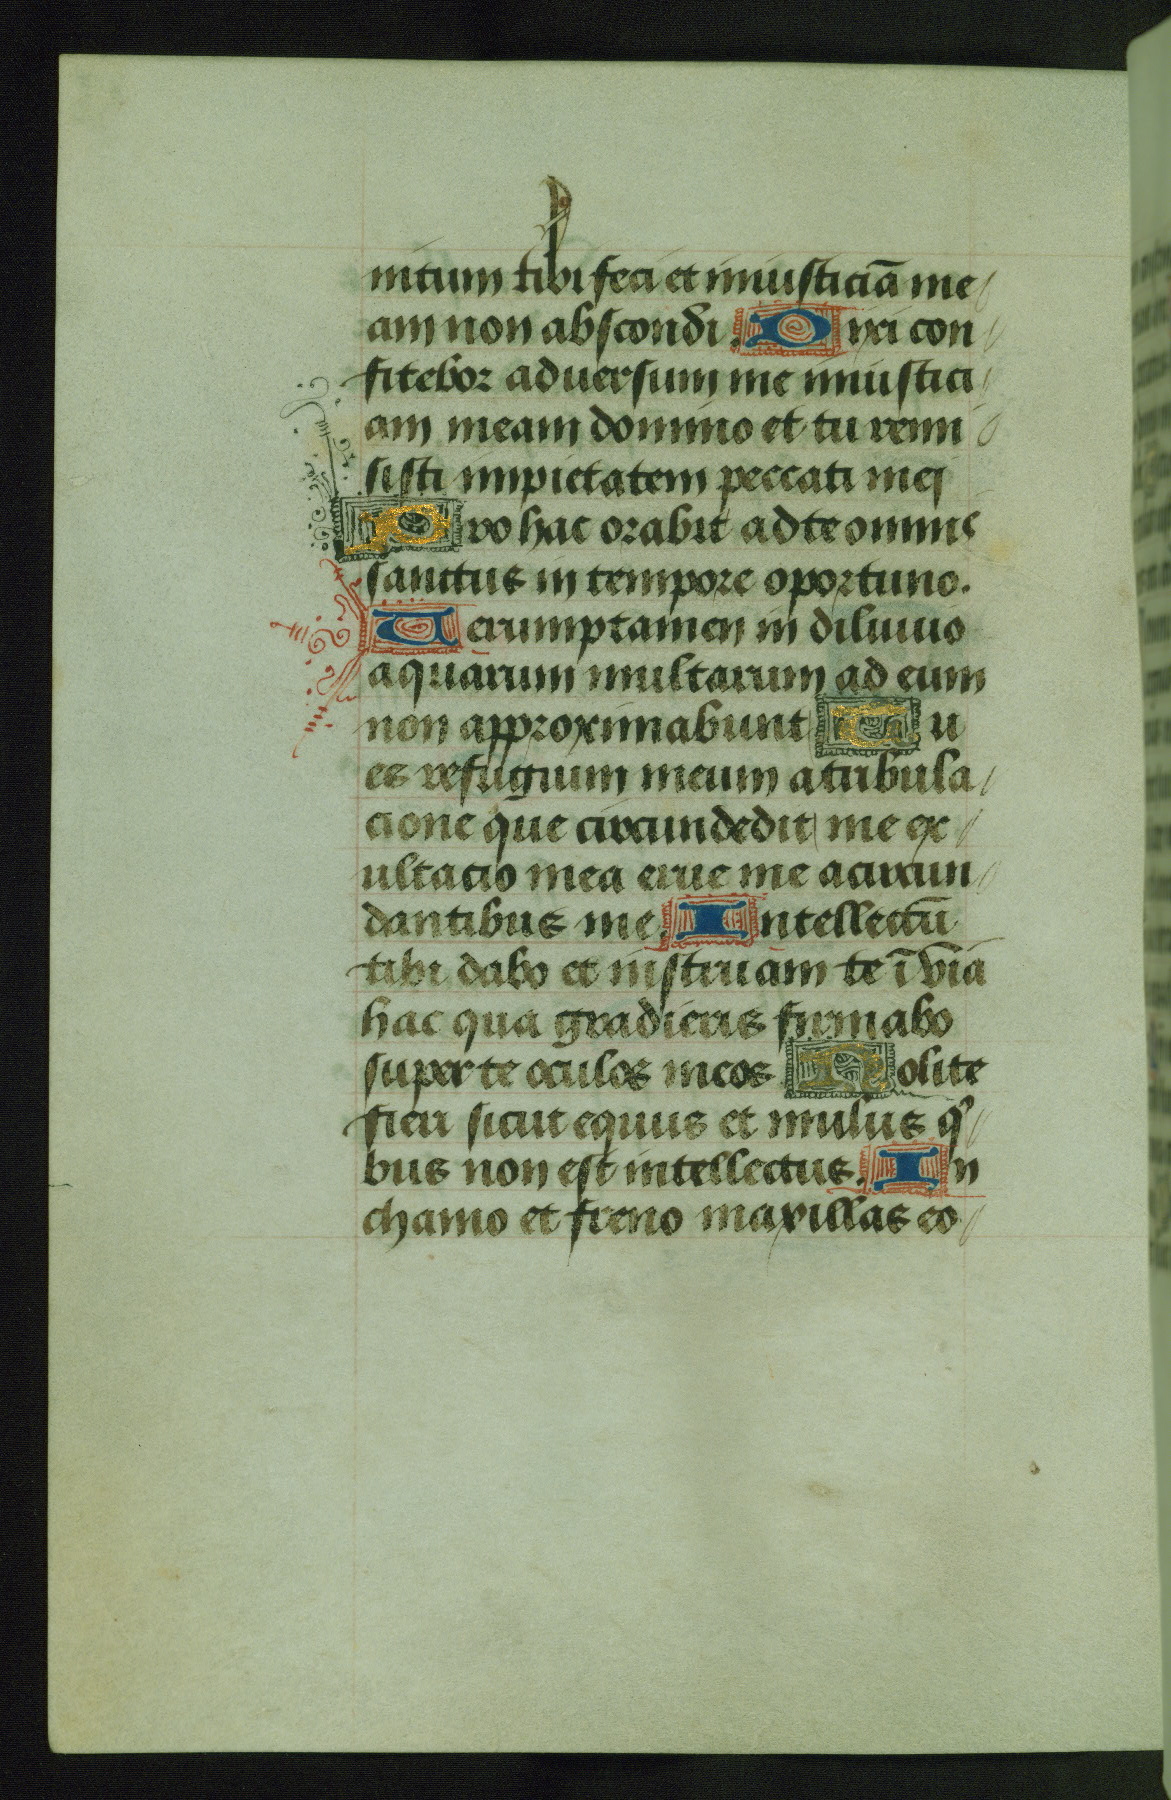 nitum tibi feci et iniusticiā me
am non abscondi. Dixi con
fitebor aduersum me iniustici
am meam domino et tu remi
sisti impietatem peccati mei
Pro hac orabit ad te omnis
sanctus in tempore oportuno.
Uerumptamen in diluuio
aquarum multarum ad eum
non approximabunt Tu
es refugium meum a tribula
cione que circundedit me ex
ultacio mea erue me a circun
dantibus me. Intellectū
tibi dabo et instruam te ī via
hac qua gradieris firmabo
super te oculos meos Nolite
fieri sicut equus et mulus qͥ
bus non est intellectus. In
chamo et freno maxillas eo